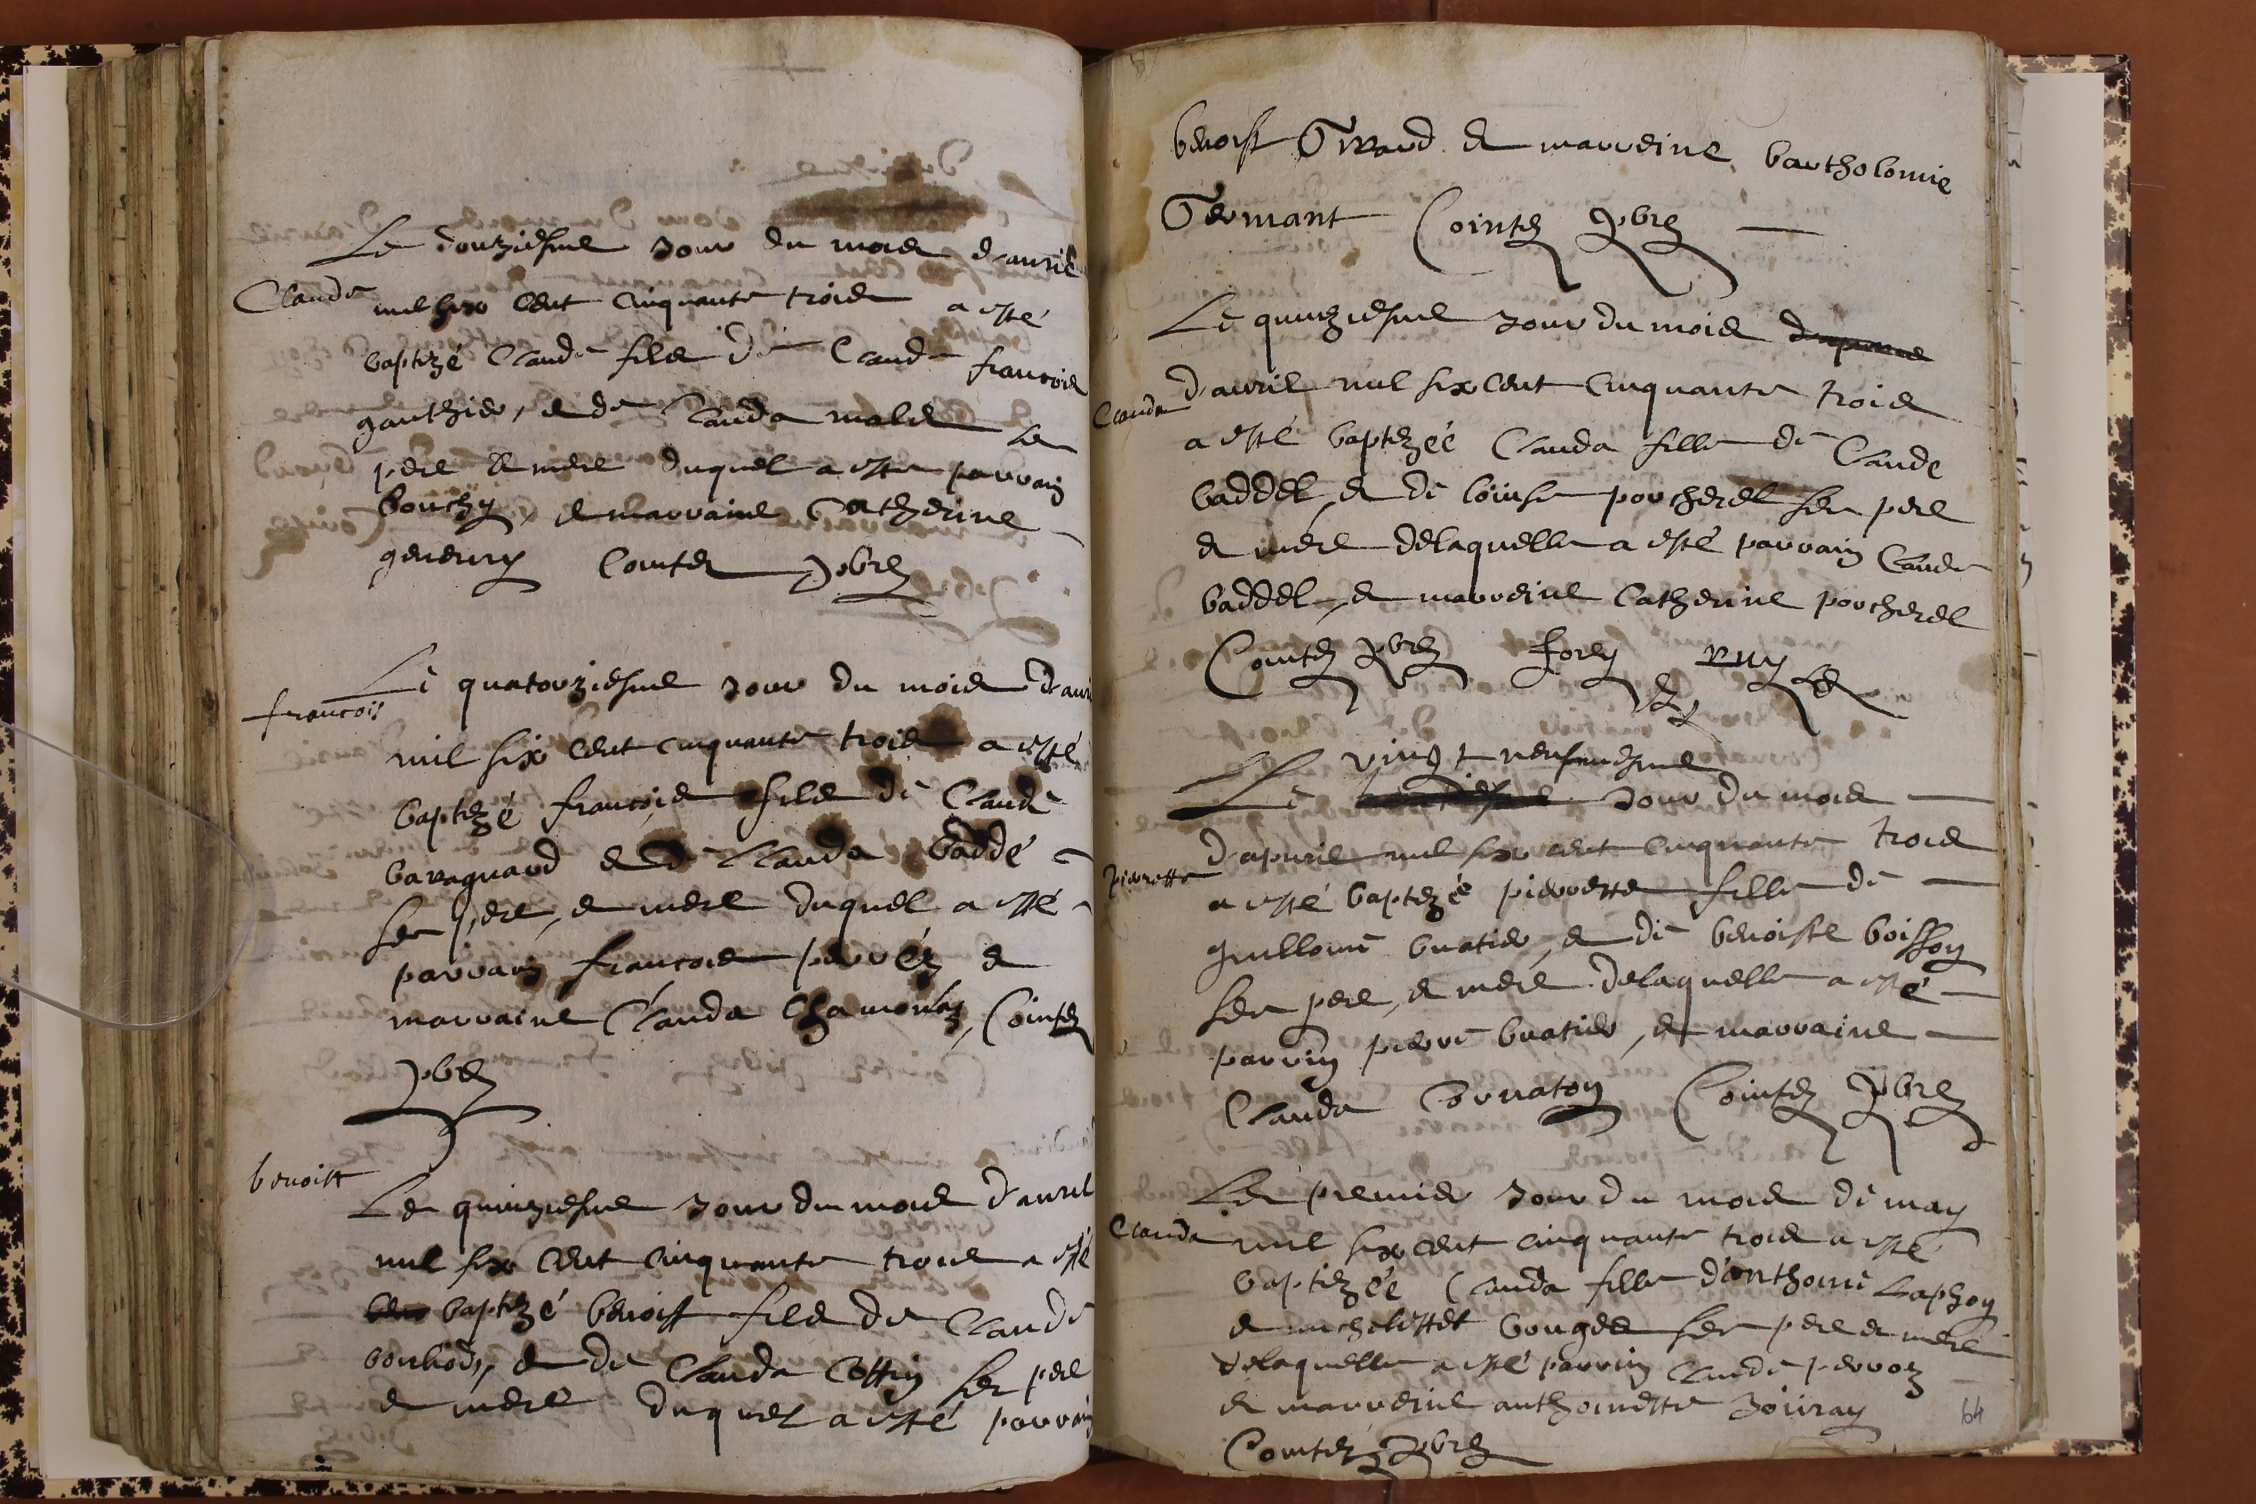 Le douziesme Jour du mois d'avril
Claude
mil six cent cinquante trois a esté
baptizé Claude fils de Claude francois
gauthier, et de Clauda
pere et mere duquel a esté parrain
bouchy, et marraine Catherine
Cointet pbre
Le quatorziesme Jour du mois d'avril
francois
mil six cent cinquante trois a esté
baptizé francois fils de Claude
baraguard et de Clauda baddé
ses pere, et mere duquel a esté
parrain francois perréz et
marraine Clauda Chamonaz, Cointet
pbre
benoist
Le quinziesme Jour du mois d'avril
mil six cent cinquante trois a esté
baptizé benoist fils de Claude
et de Clauda Cottin ses pere
et mere duquel a esté parrain
benoist Tirard et marreine bartholomie
Termant Cointet pbre
Le quinziesme Jour du mois
Clauda
d'avril mil six cent cinquante trois
a esté baptezéé Clauda fille de Claude
baddel, et de loüise porcherel ses pere
et mere delaquelle a esté parrain Claude
baddel, et marreine Catherine porcherel
Cointet pbre
vingt neufviesme
Le Jour du mois
d'apvril mil six cent cinquante trois
pierrette
a esté baptezéé pierrette fille de
guillome buatier, et de benoiste boisson
ses pere, et mere delaquelle a esté
parrin pierre buatier, et marraine
Clauda Cornaton Cointet pbre
Le premier Jour du mois de may
Clauda
mil six cent cinquante trois a esté
baptizéé Clauda fille d'anthoine Laphon
et michelette bouges ses pere et mere
delaquelle a esté parrin Claude perroz
et marreine anthoinette Joüray
Cointet pbre
64